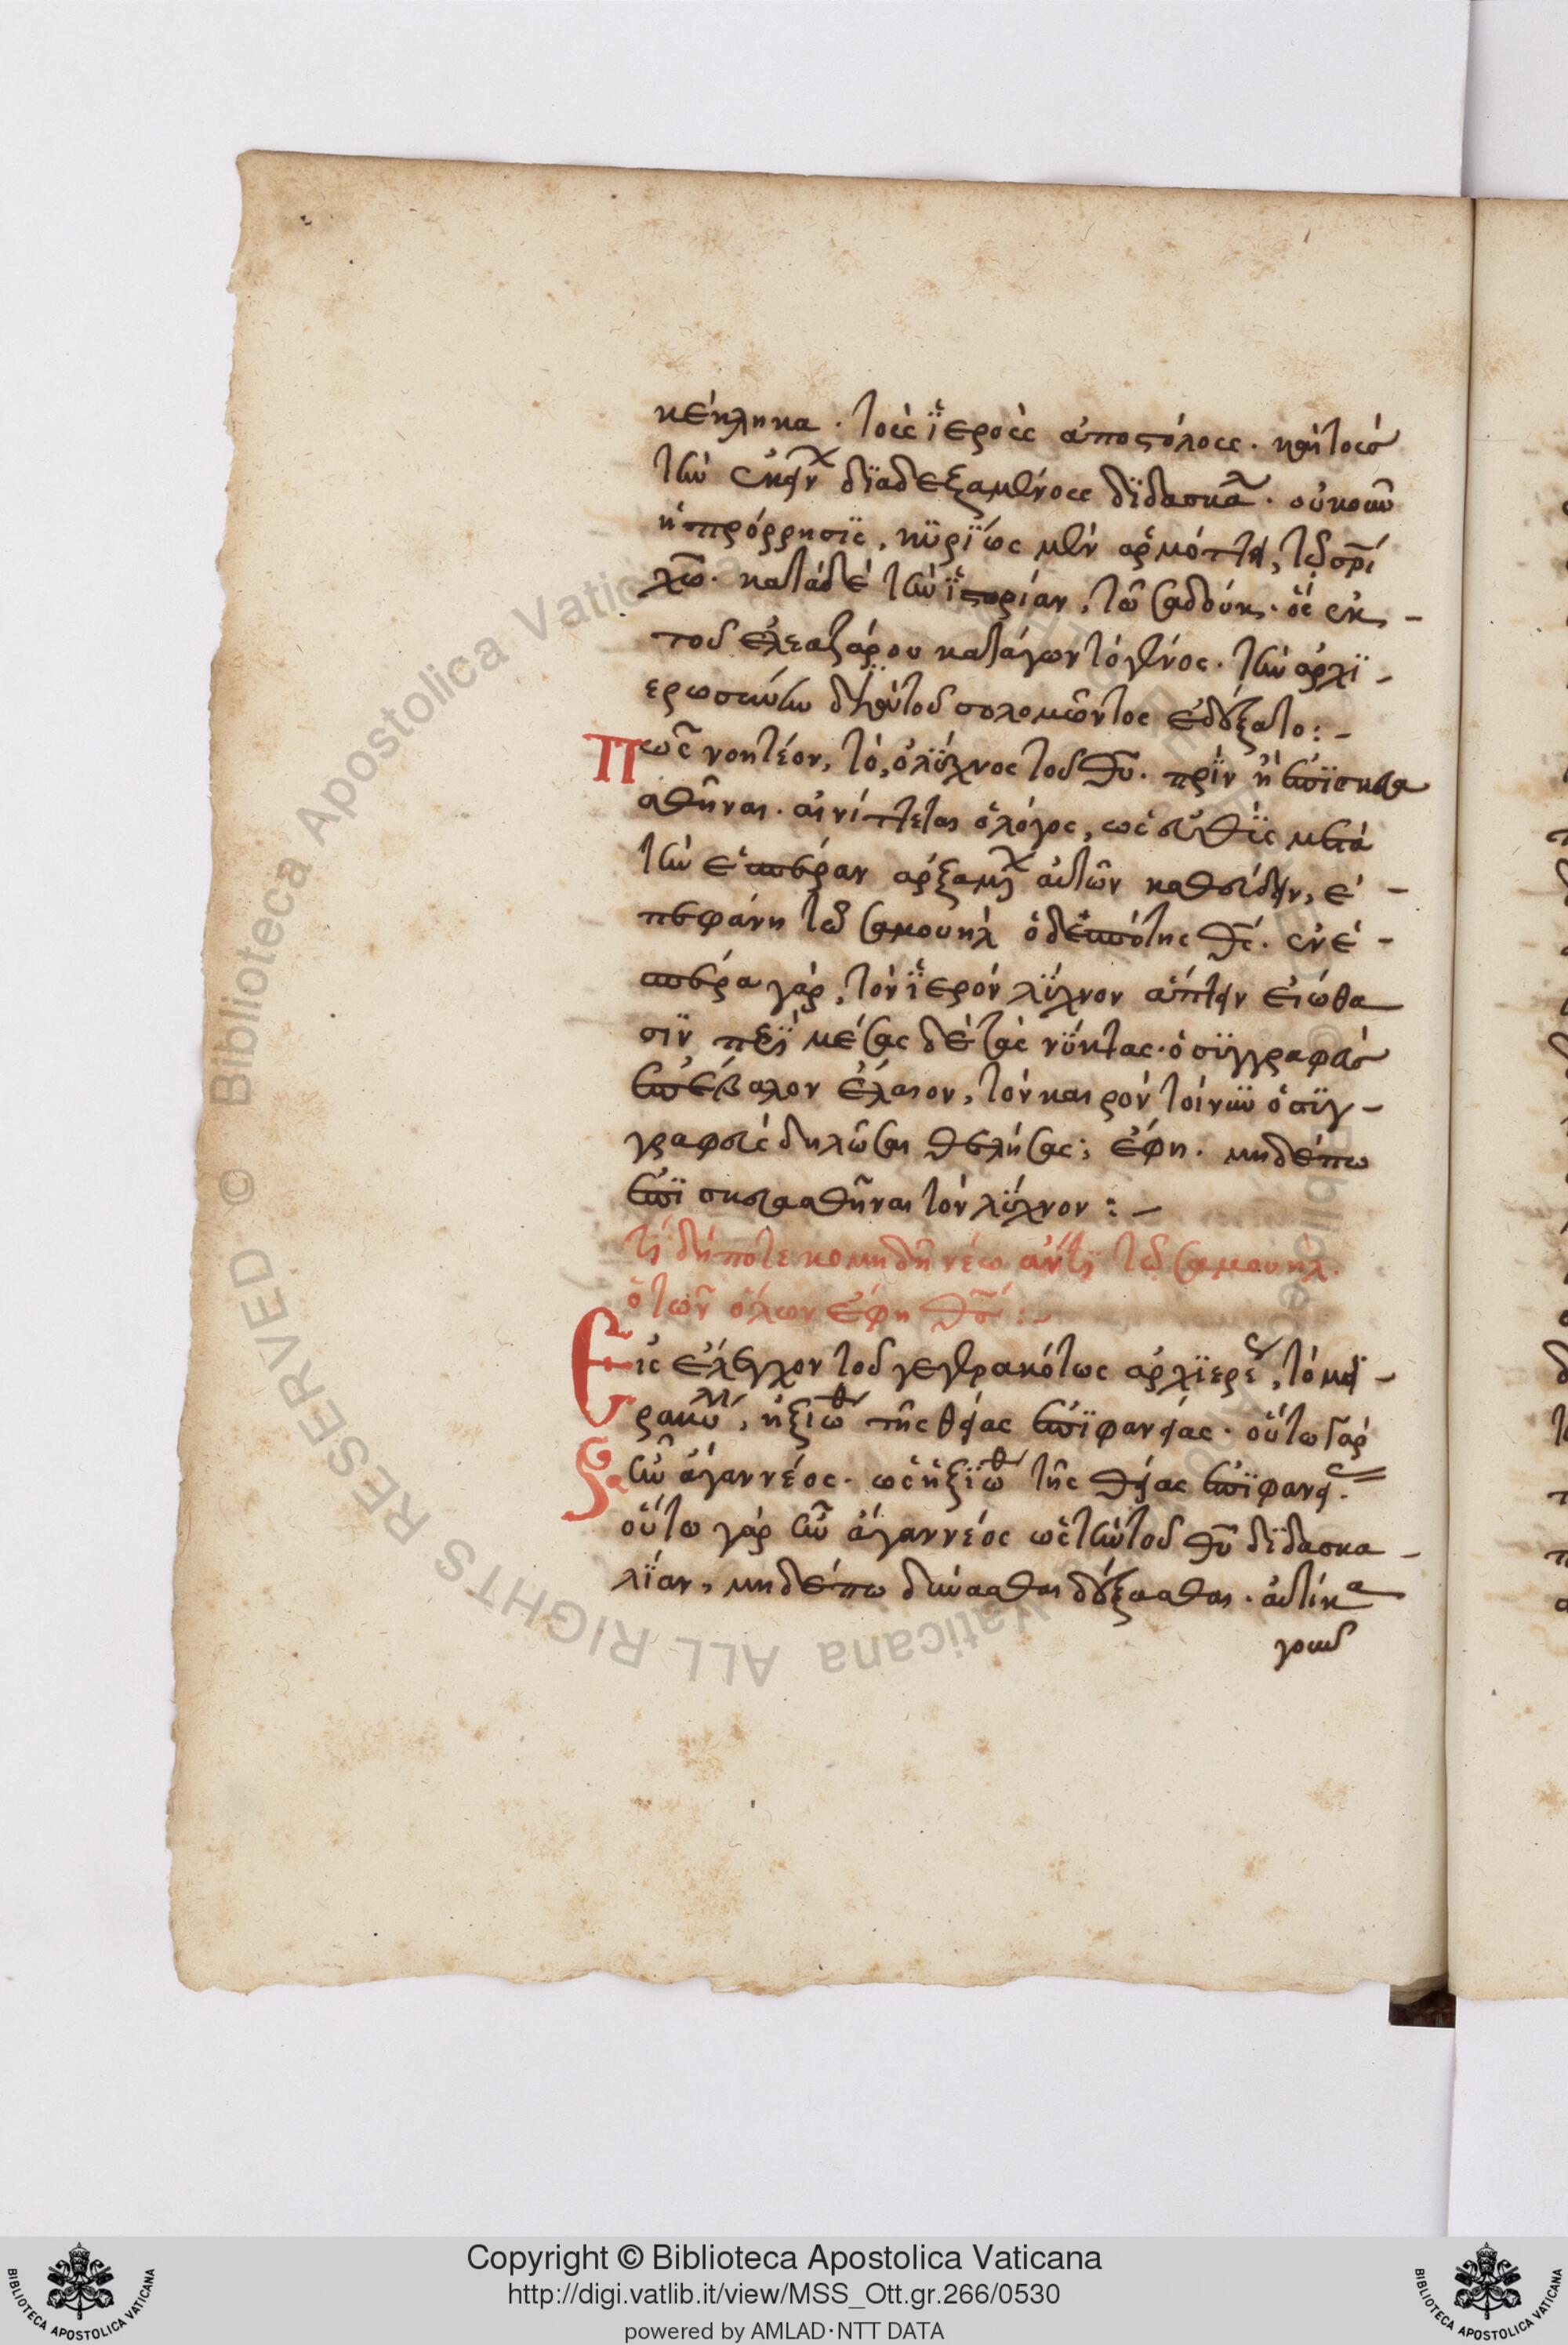 κέκληκα· τοὺς ἱεροὺς ἀποστόλους· καὶ τοὺς
τὴν ἐκείν διαδεξαμένους διδασκα· οὐκοῦν
ἡ πρόρρησις, κυρίως μὲν ἁρμόττει, τῶ σρι
χῶ· κατὰ δὲ τὴν ἱστορίαν, τῶ σαδούκ· ὃς ἐκ
τοῦ ἐλεαζάρου κατάγων τὸ γένος· τὴν ἀρχι
ερωσύνην ἐπὶ τοῦ σολομῶντος ἐδέξατο:
Πῶς νοητέον, τὸ, ὁ λύχνος τοῦ θυ· πρὶν ἢ ἐπισκευα
σθῆναι· αἰνίττεται ὁ λόγος, ὡς εὐθὺς μετὰ
τὴν ἑσπέραν ἀρξαμ αὐτῶν καθεύδειν, ἐ
πεφάνη τῶ σαμουὴλ ὁ δεσπότης θς· ἐν ἑ
σπέρα γὰρ, τὸν ἱερὸν λύχνον ἅπτειν εἰώθα
σιν περὶ μέσας δὲ τὰς νύκτας· ὁ συγγραφεὺς
ἐπέβαλον ἔλαιον, τὸν καιρὸν τοίνυν ὁ συγ
γραφεὺς δηλῶσαι θελήσας; ἔφη· μηδέπω
ἐπισκευασθῆναι τὸν λύχνον:
τί δήποτε κομηδῆ νέω ὄντι τῶ σαμουὴλ
ὁ τῶν ὅλων ἔφη θς:
Εἰς ἔλεγχον τοῦ γεγηρακότως ἀρχιερε, τὸ μει
ρακυ, ἠξιώθ τῆς θείας ἐπιφανείας· οὕτω γὰρ
ἦν ἄγαν νέος· ὡς ἠξιώθ τῆς θείας ἐπιφανεί·
οὕτω γὰρ ἦν ἄγαν νέος ὡς τὴν τοῦ θυ διδασκα
λίαν, μηδέπω δύνασθαι δέξασθαι· αὐτίκα
γοῦν
Copyright © Biblioteca Apostolica Vaticana
http://digi.vatlib.it/view/MSS_Ott.gr.266/0530
powered by AMLAD·NTT DATA
BIBLIOTECA APOSTOLICA VATICANA
BIBLIOTECA APOSTOLICA VATICANA